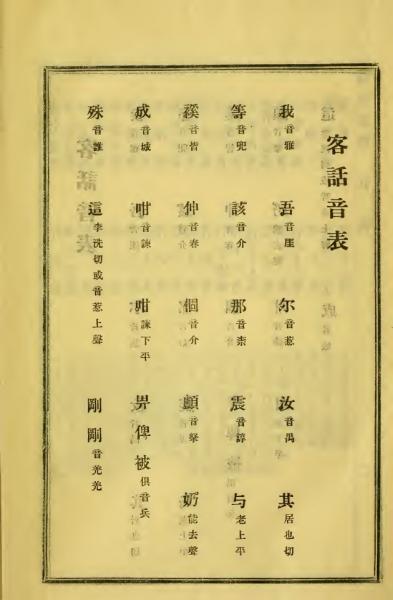 客話音表
我音雅 吾音崖 尔音惹 汝音禺 其居也切
等音兜 該音介 那音柰 震音諄 与老上平
徯音皆 仲音春 個音介 顛音拏 妳能去聲
成音城 咁音諫 咁諫下平 畀俾被俱音兵
殊音誰 這李洗切或音惹上聲 剛剛音羌羌